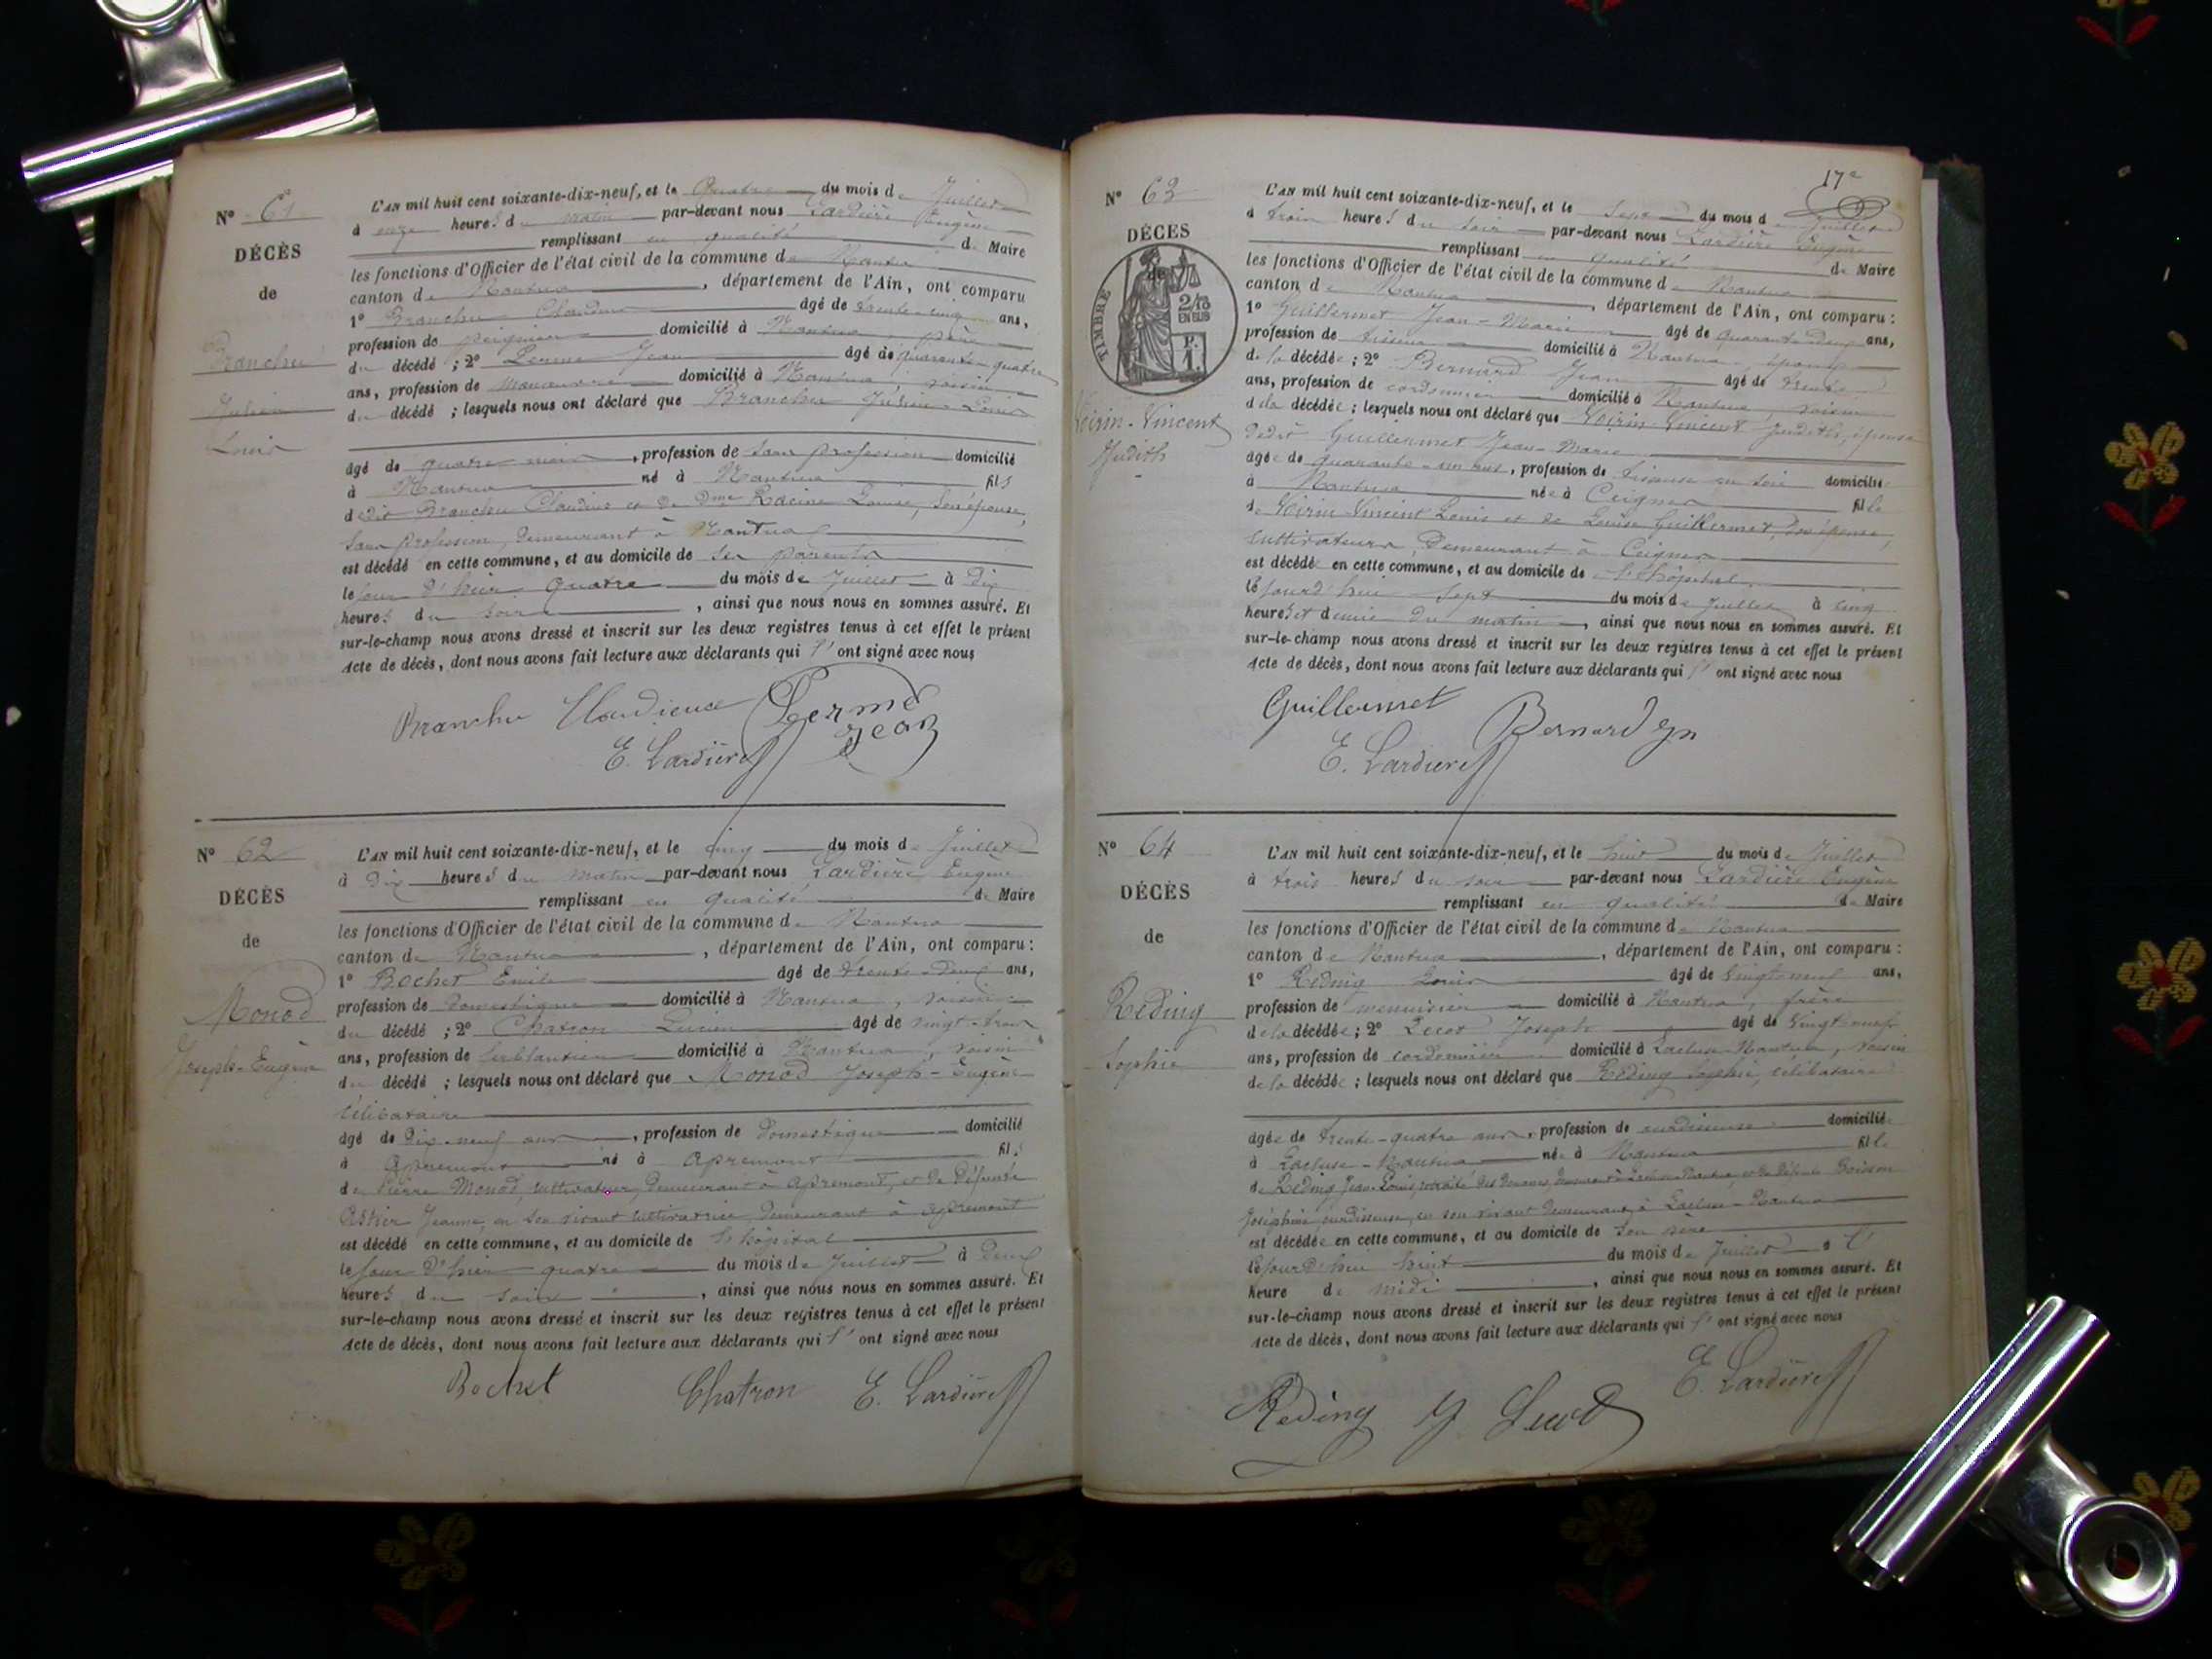 N° 61
DÉCÈS
de
Branchu
Julien
Louis
L'AN mil huit cent soixante-dix-neuf, et le Quatre du mois de Juillet
à onze heures du matin par-devant nous Lardière Eugène
remplissant en qualité de Maire
les fonctions d'Officier de l'état civil de la commune de Nantua
canton de Nantua, département de l'Ain, ont comparu
1° Branchu Claudius âgé de trente-cinq ans,
profession de peignier domicilié à Nantua, père
du décédé ; 2° Lerme Jean âgé de quarante-quatre
ans, profession de manœuvre domicilié à Nantua, voisin
du décédé ; lesquels nous ont déclaré que Branchu Julien-Louis
âgé de quatre mois, profession de sans profession domicilié
à Nantua né à Nantua fils
dedit Branchu Claudius et de Dme Racine Louise, son épouse,
sans profession, demeurant à Nantua
est décédé en cette commune, et au domicile de ses parents
le jour d'hier quatre du mois de Juillet à dix
heures du soir, ainsi que nous nous en sommes assuré. Et
sur-le-champ nous avons dressé et inscrit sur les deux registres tenus à cet effet le présent
Acte de décès, dont nous avons fait lecture aux déclarants qui l' ont signé avec nous
Branchu Claudieuse Lerme Jean
E. Lardière
N° 62
DÉCÈS
de
Monod
Joseph-Eugène
L'AN mil huit cent soixante-dix-neuf, et le cinq du mois de Juillet
à dix heures du matin par-devant nous Lardière Eugène
remplissant en qualité de Maire
les fonctions d'Officier de l'état civil de la commune de Nantua
canton de Nantua, département de l'Ain, ont comparu :
1° Bochet Emile âgé de trente-deux ans,
profession de domestique domicilié à Nantua, voisin
du décédé ; 2° Chatron Lucien âgé de vingt-trois
ans, profession de ferblantier domicilié à Nantua, voisin
du décédé ; lesquels nous ont déclaré que Monod Joseph-Eugène
célibataire
âgé de dix-neuf ans, profession de domestique domicilié
à Apremont né à Apremont fils
de Pierre Monod, cultivateur, demeurant à Apremont, et de défunte
Astier Jeanne, en son vivant cultivatrice, demeurant à Apremont
est décédé en cette commune, et au domicile de l'hôpital
le jour d'hier quatre du mois de Juillet à deux
heures du soir, ainsi que nous nous en sommes assuré. Et
sur-le-champ nous avons dressé et inscrit sur les deux registres tenus à cet effet le présent
Acte de décès, dont nous avons fait lecture aux déclarants qui l' ont signé avec nous
Bochet Chatron E. Lardière
17e
N° 63
DÉCÈS
de
TIMBRE
2/10 EN SUS
F. 1.
Voirin-Vincent
Judith
L'AN mil huit cent soixante-dix-neuf, et le sept du mois de Juillet
à trois heures du soir par-devant nous Lardière Eugène
remplissant en qualité de Maire
les fonctions d'Officier de l'état civil de la commune de Nantua
canton de Nantua, département de l'Ain, ont comparu :
1° Guillermet Jean-Marie âgé de quarante-deux ans,
profession de tisseur domicilié à Nantua, époux
de la décédée ; 2° Bernard Jean âgé de trente
ans, profession de cordonnier domicilié à Nantua, voisin
de la décédée ; lesquels nous ont déclaré que Voirin-Vincent Judith, épouse
dedit Guillermet Jean-Marie
âgée de quarante-un ans, profession de tisseuse en soie domiciliée
à Nantua née à Ceignes fille
de Voirin-Vincent Louis et de Louise Guillermet, son épouse,
cultivateurs, demeurant à Ceignes
est décédée en cette commune, et au domicile de l'hôpital
le jourd'hui sept du mois de Juillet à cinq
heures et demie du matin, ainsi que nous nous en sommes assuré. Et
sur-le-champ nous avons dressé et inscrit sur les deux registres tenus à cet effet le présent
Acte de décès, dont nous avons fait lecture aux déclarants qui l' ont signé avec nous
Guillermet Bernard Jn
E. Lardière
N° 64
DÉCÈS
de
Reding
Sophie
L'AN mil huit cent soixante-dix-neuf, et le huit du mois de Juillet
à trois heures du soir par-devant nous Lardière Eugène
remplissant en qualité de Maire
les fonctions d'Officier de l'état civil de la commune de Nantua
canton de Nantua, département de l'Ain, ont comparu :
1° Reding Louis âgé de vingt-neuf ans,
profession de menuisier domicilié à Nantua, frère
de la décédée ; 2° Lecot Joseph âgé de vingt-neuf
ans, profession de cordonnier domicilié à Lacluse-Nantua, voisin
de la décédée ; lesquels nous ont déclaré que Reding Sophie, célibataire
âgée de trente-quatre ans, profession de ourdisseuse domiciliée
à Lacluse-Nantua née à Nantua fille
de Reding Jean-Louis, retraité des Douanes, demeurant à Lacluse-Nantua, et de défunte Boisson
Joséphine, ourdisseuse, en son vivant demeurant à Lacluse-Nantua
est décédée en cette commune, et au domicile de son père
le jourd'hui huit du mois de Juillet à l'
heure de midi, ainsi que nous nous en sommes assuré. Et
sur-le-champ nous avons dressé et inscrit sur les deux registres tenus à cet effet le présent
Acte de décès, dont nous avons fait lecture aux déclarants qui l' ont signé avec nous
Reding J. Lecot E. Lardière